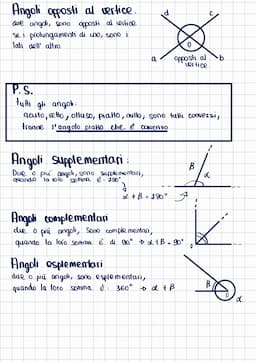 Angoli opposti al vertice.
due angoli, sono opposti al vertice
se i prolungamenti di uno, sono i
lati dell'altro.
d
c
O
a
b
opposti al
vertice
P.S.
tutti gli angoli:
acuto, retto, ottuso, piatto, nullo, sono tutti convessi,
tranne l'angolo piatto che è concavo
Angoli Supplementari:
Due o più angoli, sono supplementari,
quando la loro somma è 180°
α + β = 180°
β
α
Angoli complementari
due o più angoli, sono complementari,
quando la loro somma è di 90° → α + β = 90°
Angoli esplementari
due o più angoli, sono esplementari,
quando la loro somma è: 360° → α + β
β
α